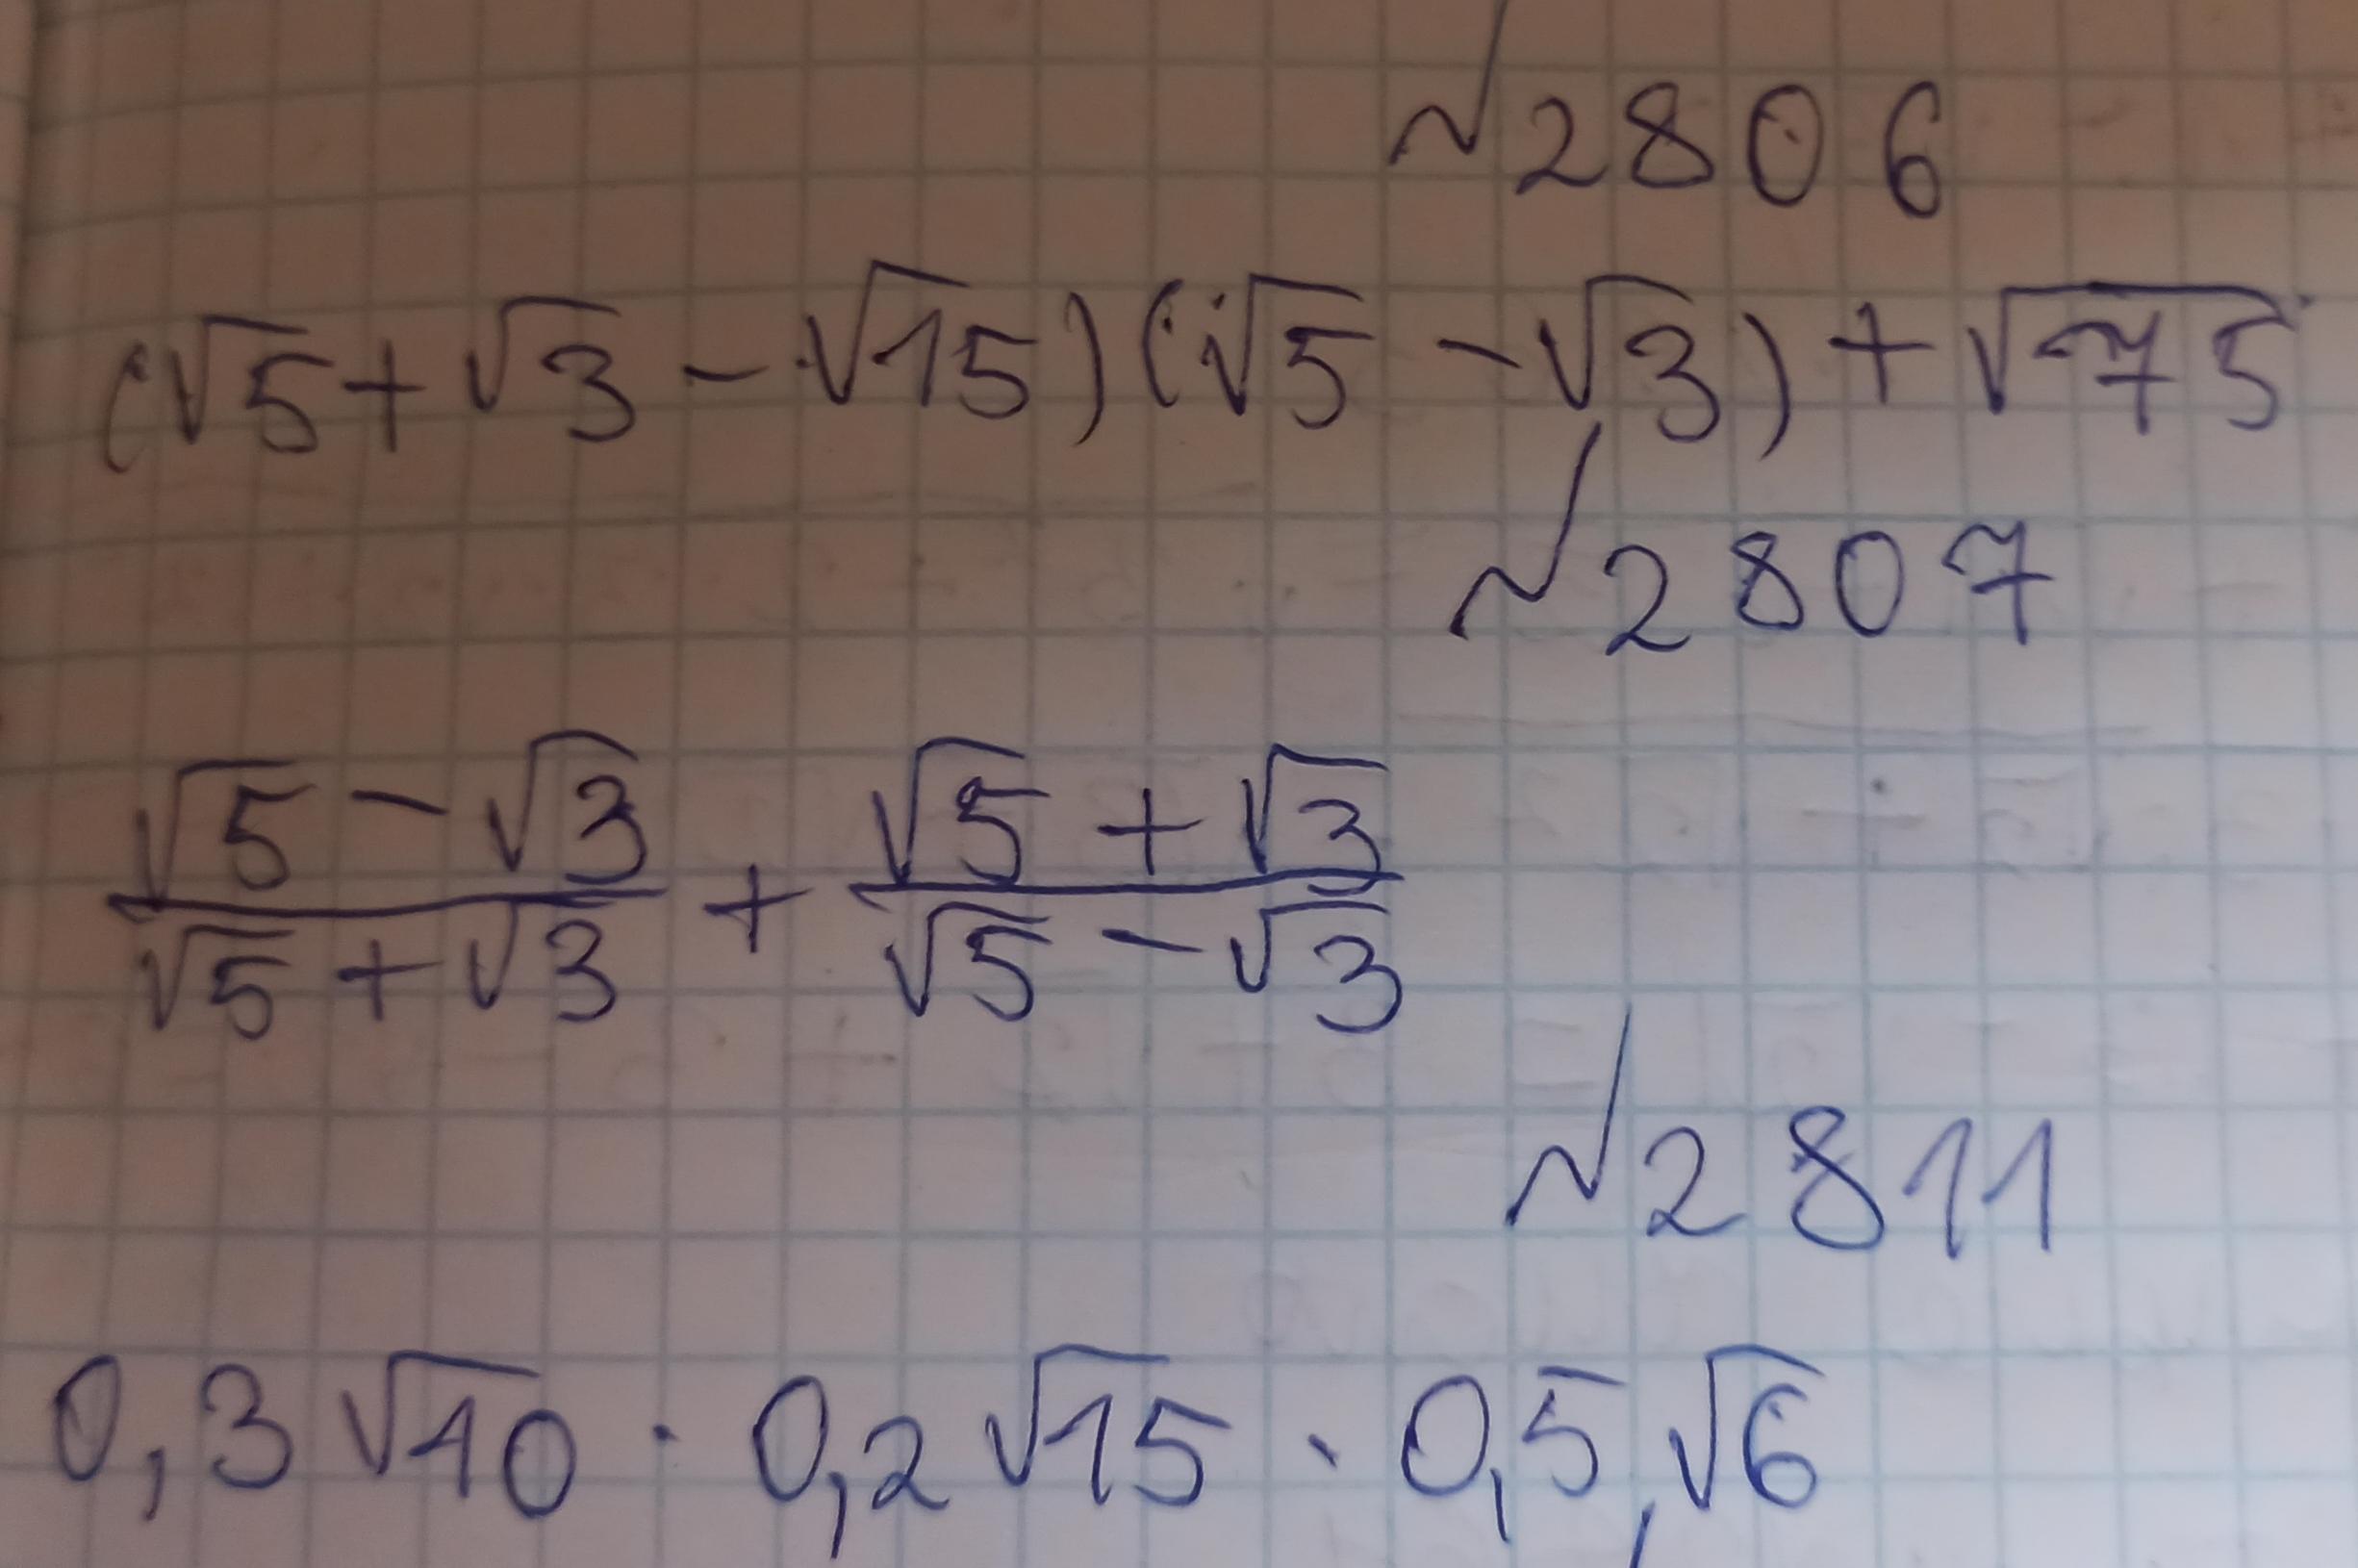 № 2806
(√5 + √3 - √15)(√5 - √3) + √75
№ 2807
(√5 - √3)/(√5 + √3) + (√5 + √3)/(√5 - √3)
№ 2811
0,3√10 · 0,2√15 · 0,5√6